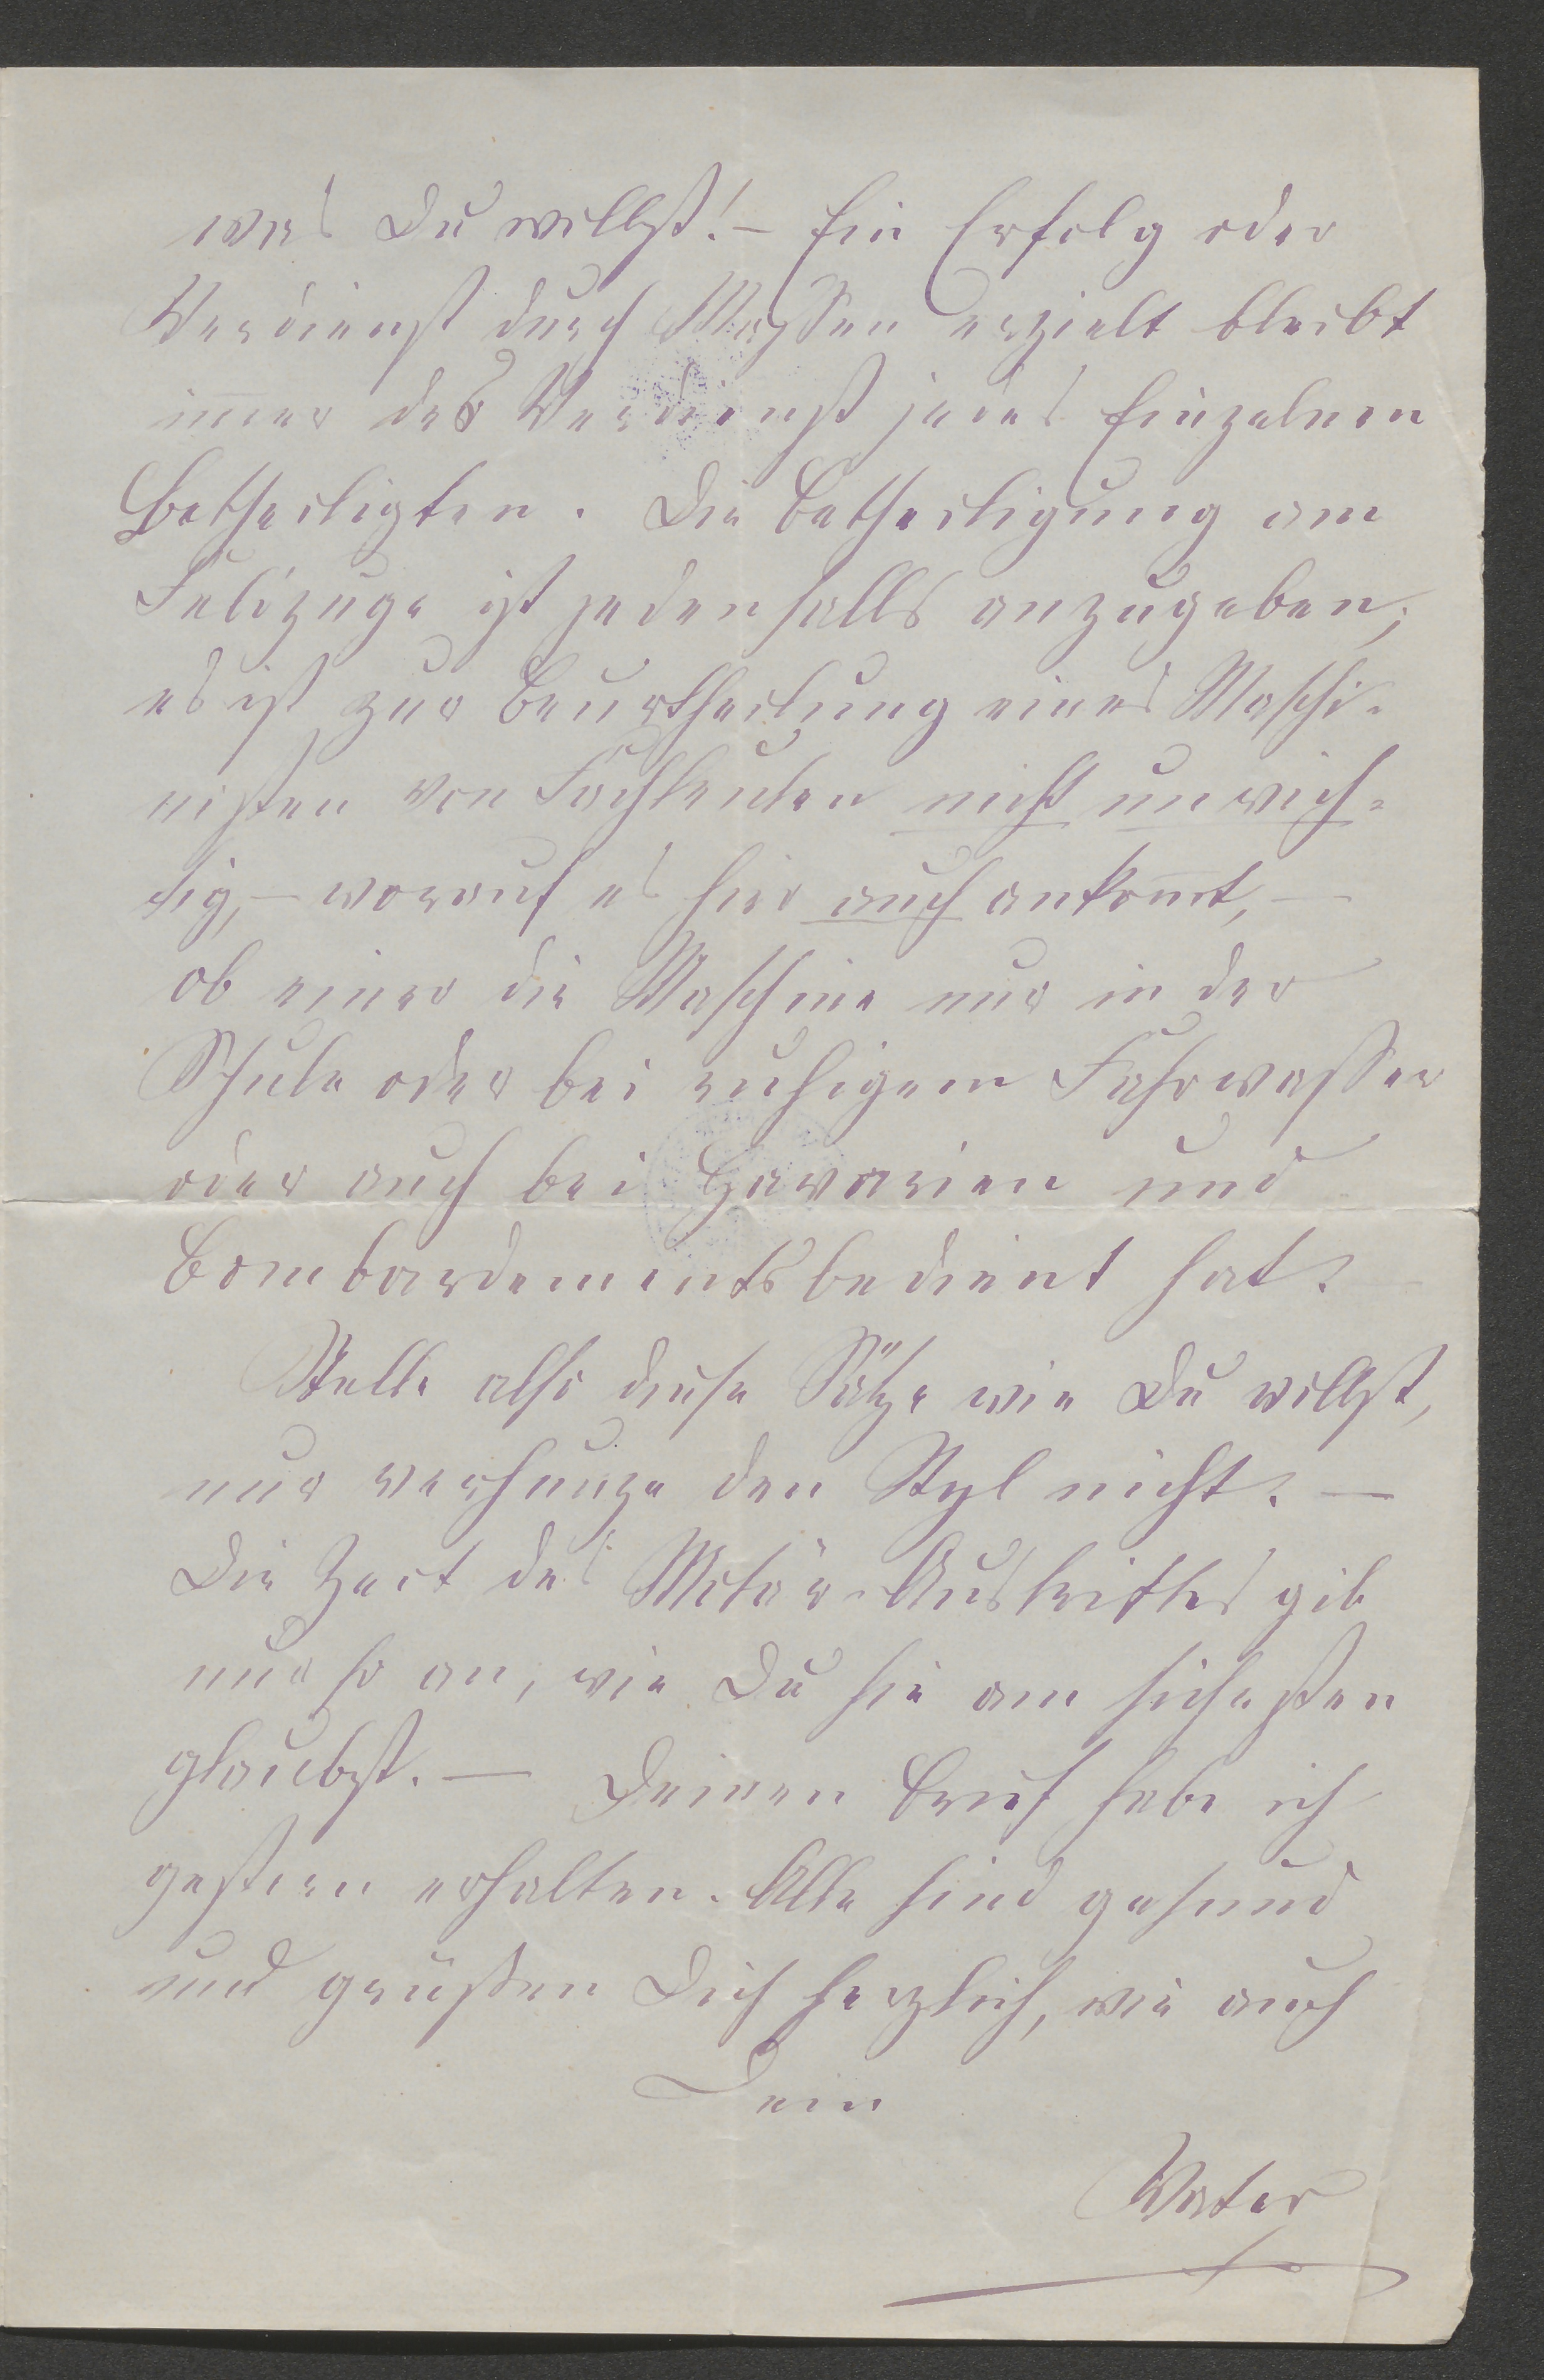 was Du willst! – Ein Erfolg oder
Verdienst durch Massen erzielt bleibt
im̅er das Verdienst jedes Einzelnen
Betheiligten. Die Betheiligung am
Feldzuge ist jedenfalls anzugeben;
es ist zur Beurtheilung eines Maschi-
nisten von Fachleuten nicht unwich-
tig, – worauf es hier auch ankom̅t, –
ob einer die Maschine nur in der
Schule oder bei ruhigem Fahrwasser
oder auch bei Havarien und
Bombardements bedient hat? –
Stelle also diese Sätze wie Du willst,
nur verhunze den Styl nicht. –
Die Zeit des Austrittes gib
nur so an, wie Du sie am sichersten
glaubst. – Deinen Brief habe ich
gestern erhalten. Alle sind gesund
und grüßen Dich herzlich, wie auch
Dein
Vater